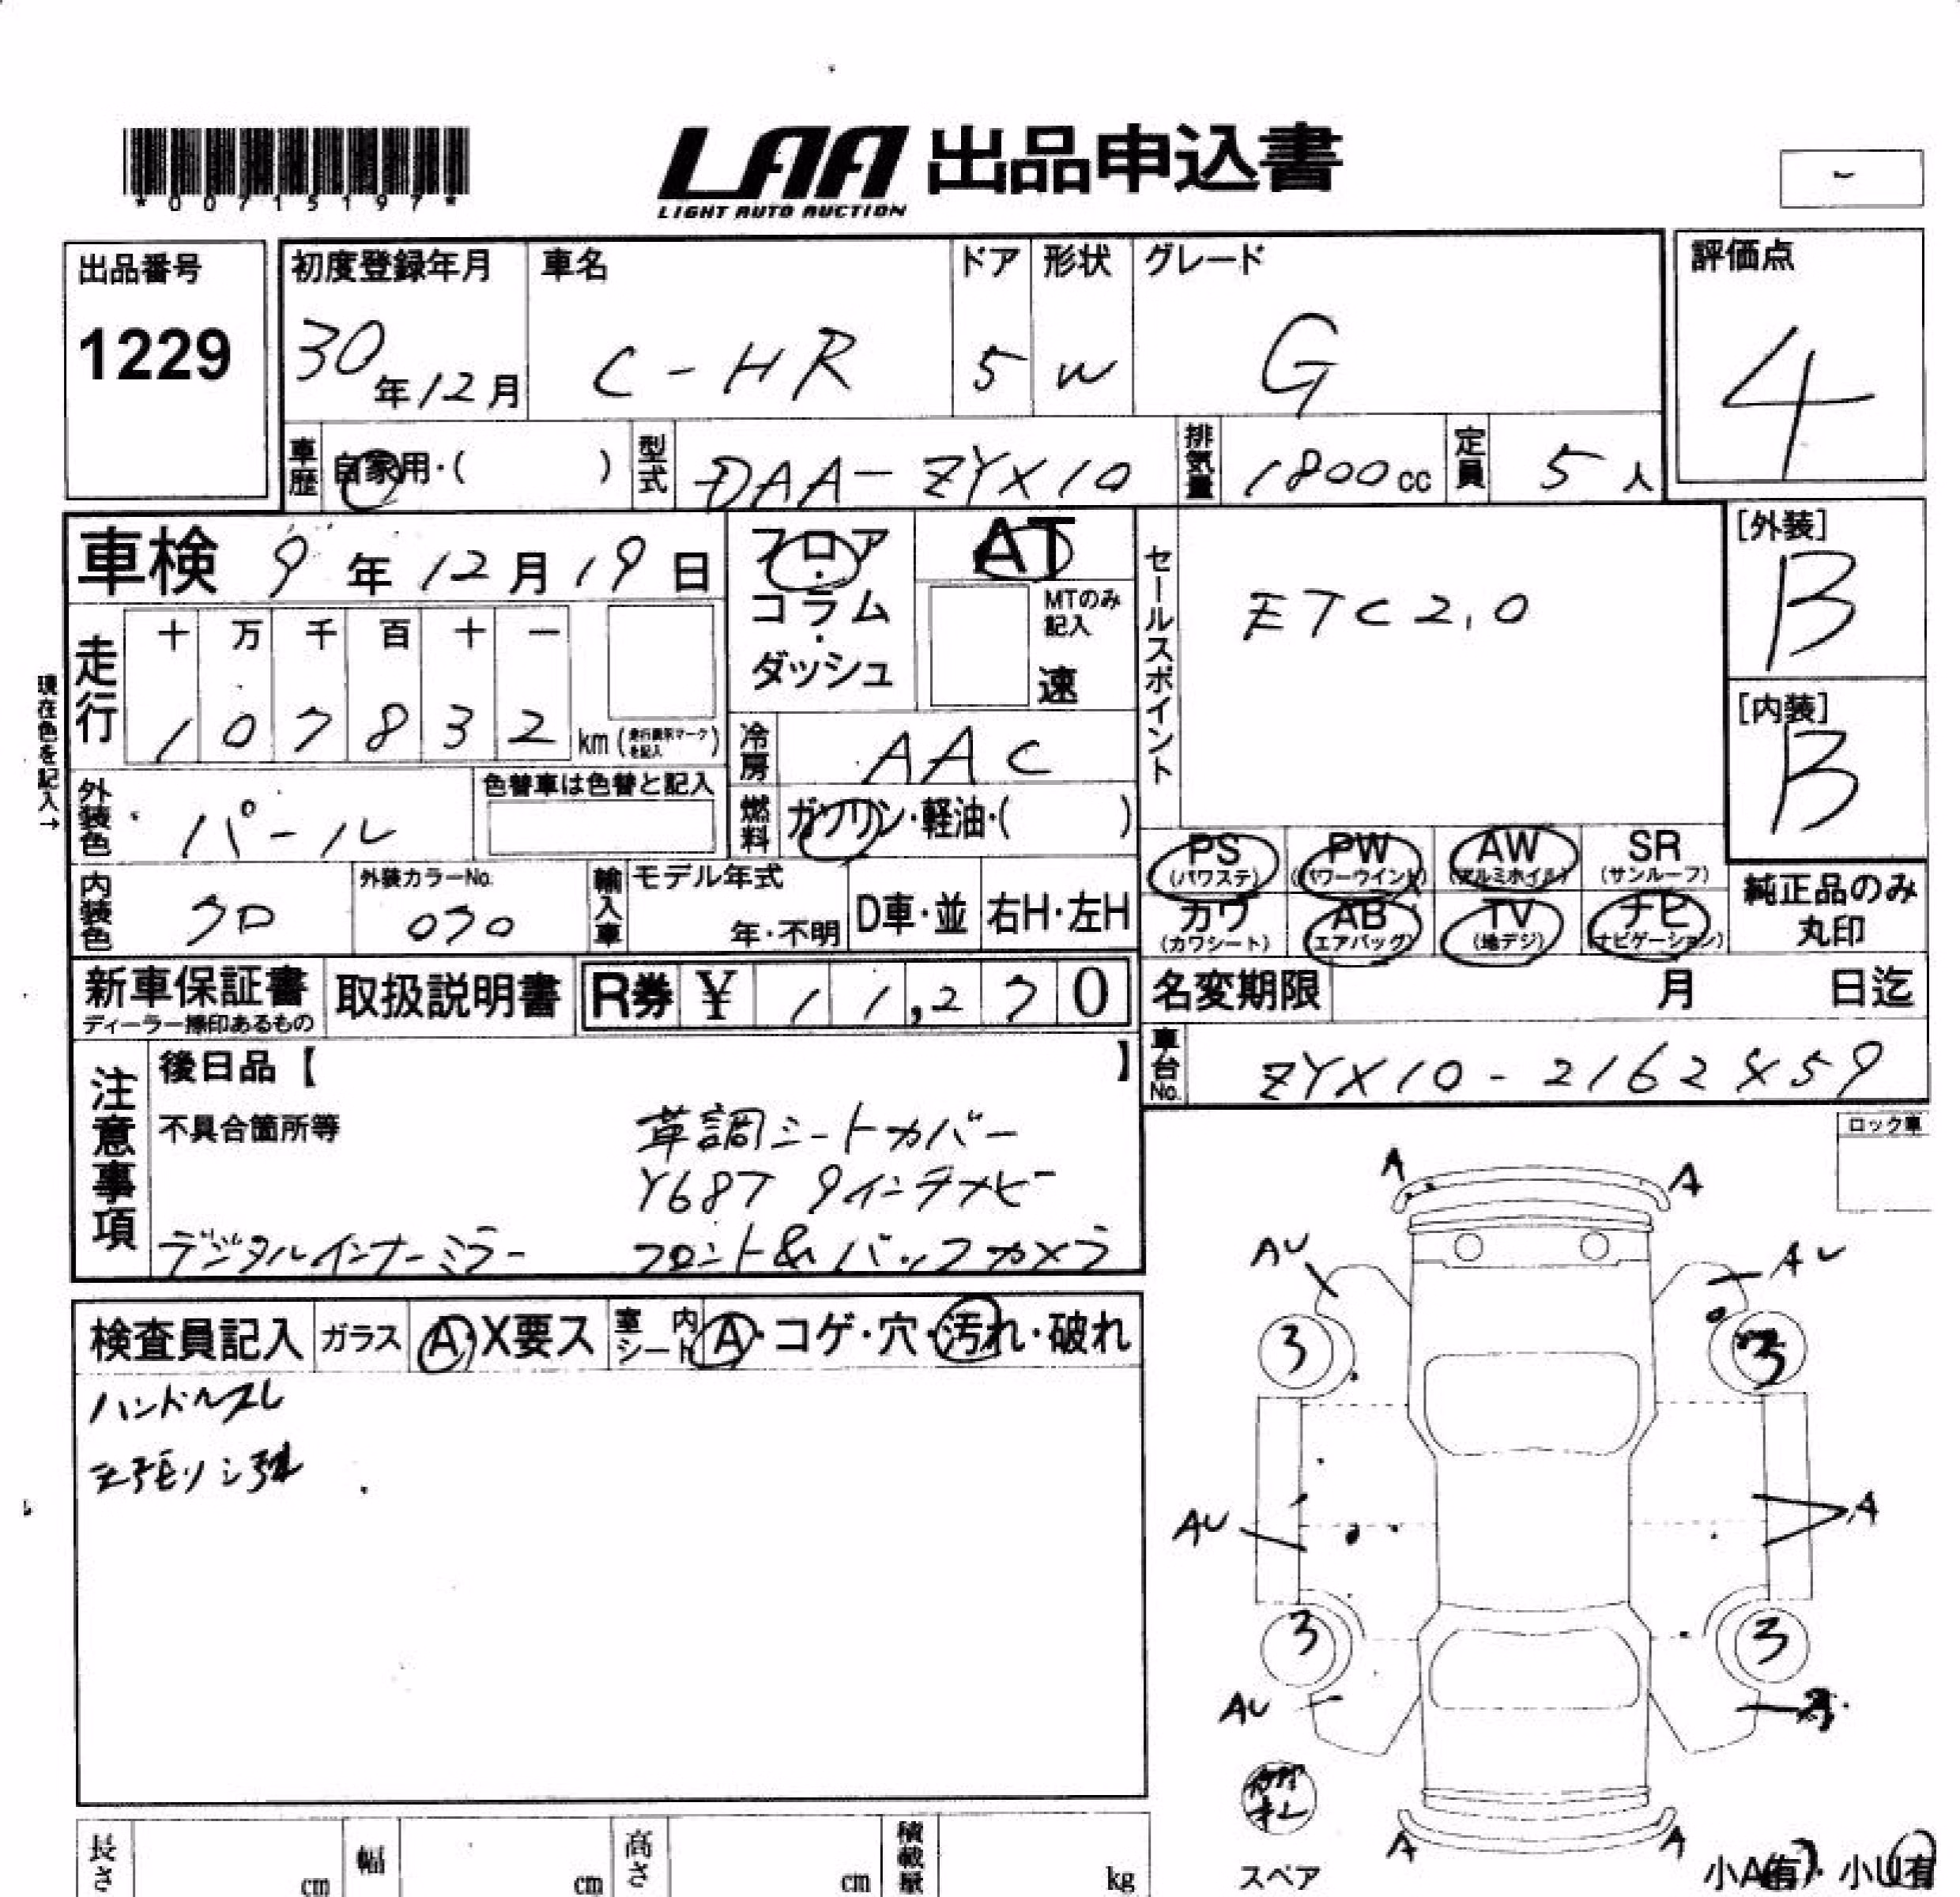 *00715197*
LAA 出品申込書
LIGHT AUTO AUCTION
-
出品番号 初度登録年月 車名 ドア 形状 グレード 評価点
1229 30年12月 C-HR 5 W G 4
車歴 自家用・( ) 型式 DAA-ZYX10 排気量 1800cc 定員 5人
車検 9年12月19日 フロア・コラム・ダッシュ AT セールスポイント [外装]
B
MTのみ記入 速 ETC2.0
現在色を記入→
走行 十 万 千 百 十 一
1 0 7 8 3 2 km (走行表示マークを記入) 冷房 AAC [内装]
B
外装色 パール 色替車は色替と記入 燃料 ガソリン・軽油・( )
PS (パワステ) PW (パワーウインド) AW (アルミホイル) SR (サンルーフ)
内装色 クロ 外装カラーNo. 070 輸入車 モデル年式 年・不明 D車・並 右H・左H
カワ (カワシート) AB (エアバッグ) TV (地デジ) ナビ (ナビゲーション) 純正品のみ丸印
新車保証書 ディーラー捺印あるもの 取扱説明書 R券 ¥ 11,270 名変期限 月 日迄
注意事項 後日品【 】 車台No. ZYX10-2162859
不具合箇所等 革調シートカバー ロック車
Y68T 9インチナビ
デジタルインナーミラー フロント&バックカメラ
検査員記入 ガラス A・X要ス 室内シート A・コゲ・穴・汚れ・破れ
ハンドルスレ
A A
AU AU
3 3
AU A
3 3
AU
A A
スペア
小A有・小U有
長さ cm 幅 cm 高さ cm 積載量 kg